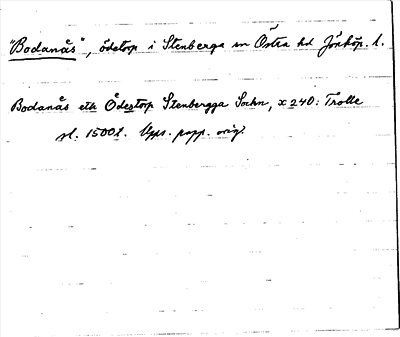 "Bodanäs", ödetorp i Stenberga sn Östra hd Jönköp. l.
Bodanäs ett Ödestorp Stenbergga Sockn, x 240: Trolle
sl. 1500 t. Upps. papp. orig.